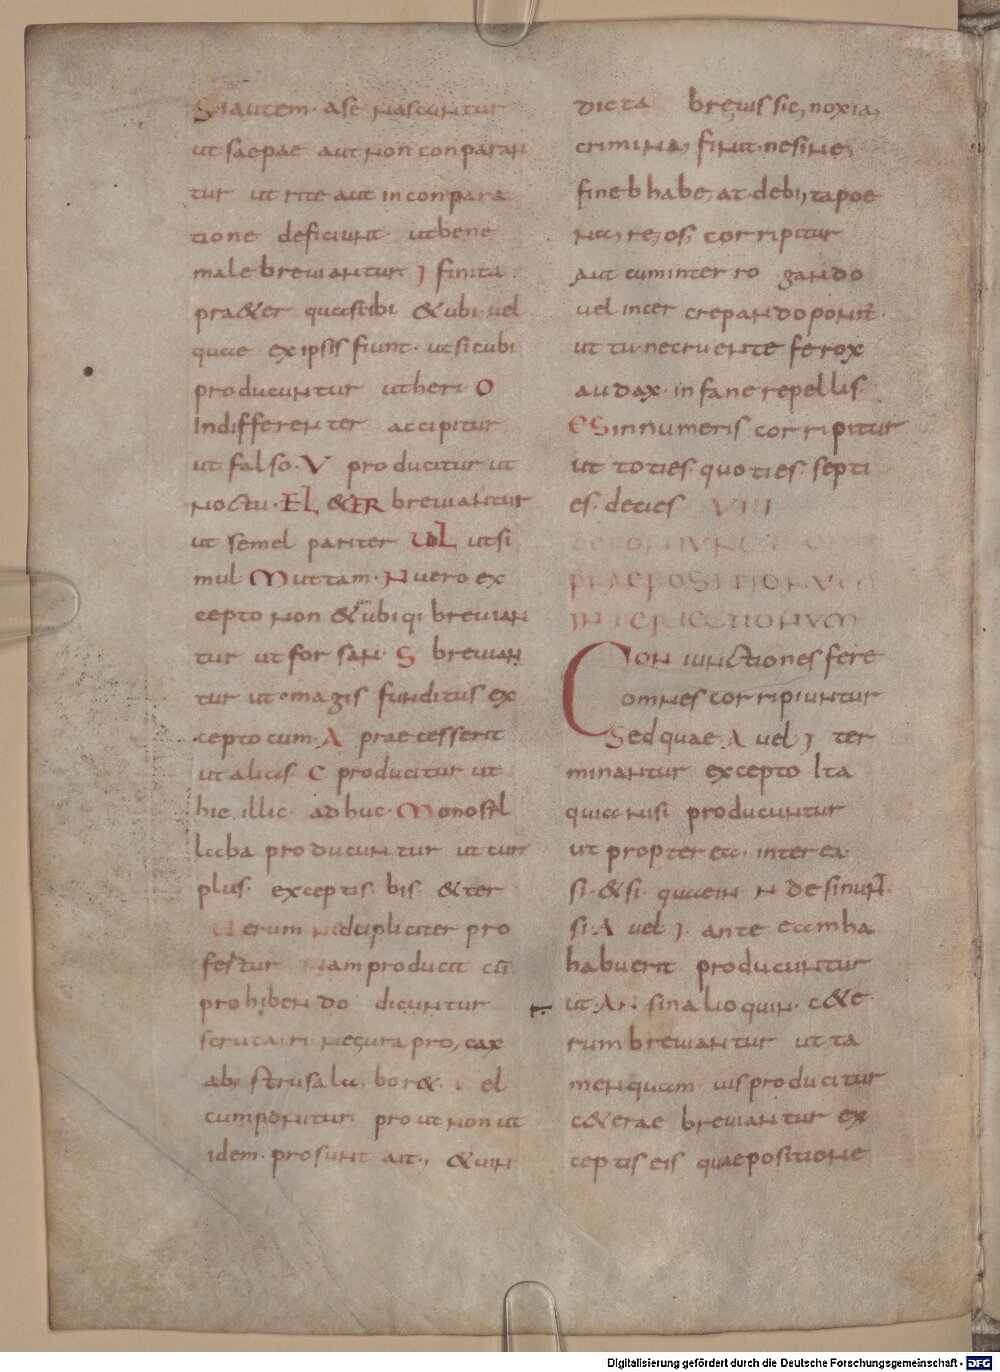 Siautem· ase nascuntur
ut saepae aut non conparan
tur ut rite aut in conpara
tione deficiunt· ut bene
male breuiantur I finita
pra&er quae sibi &ubi uel
quae ex ipsis fiunt· ut sicubi
producuntur ut heri O
Indifferenter accipitur
ut falso· V producitur ut
noctu· EL &ER breuiantur
ut semel pariter UL utsi
mul Muttam· N uero ex
cepto non & ubiqi breuian
tur ut forsan· S breuian
tur ut· magis funditus ex
cepto cum· A praecesserit
ut alias· C producitur ut
hic illic· adhuc· Monosil
laba producuntur ut cur
plus· exceptis· bis· &ter
Uerum Ne dupliciter pro
fertur Nam producit cū
prohibendo dicuntur
scrutari· ne cura procax
abstrusa labor&· el
cum ponitur· pro ut non ut
idem· prosunt aut· &uin
dicta breuis sic noxia
crimina finit· ne sine
fine b habeat· debita poe
na reos· corripitur
Aut cum inter rogando
uel increpando ponit̄·
ut tu· ne cruente ferox
audax· infane repellis·
ES in numeris corripitur
ut toties· quoties· septi
es· decies VIII
DECONIUNCTIO
PRAEPOSITIONUM
INTERIECTIONUM
Coniunctiones fere
omnes corripiuntur
Sed quae A uel I ter
minantur excepto Ita
quia nisi producuntur
ut propterea· interea·
si· &si· quae in N desinun̄
si A uel I· ante eam ha
habuerit producuntur
ut· AN sin alioquin· c&e
rum breuiantur ut ta
men quam uis producitur
c&erae breuiantur ex
ceptis eis quaepositione
Digitalisierung gefördert durch die Deutsche Forschungsgemeinschaft - DFG